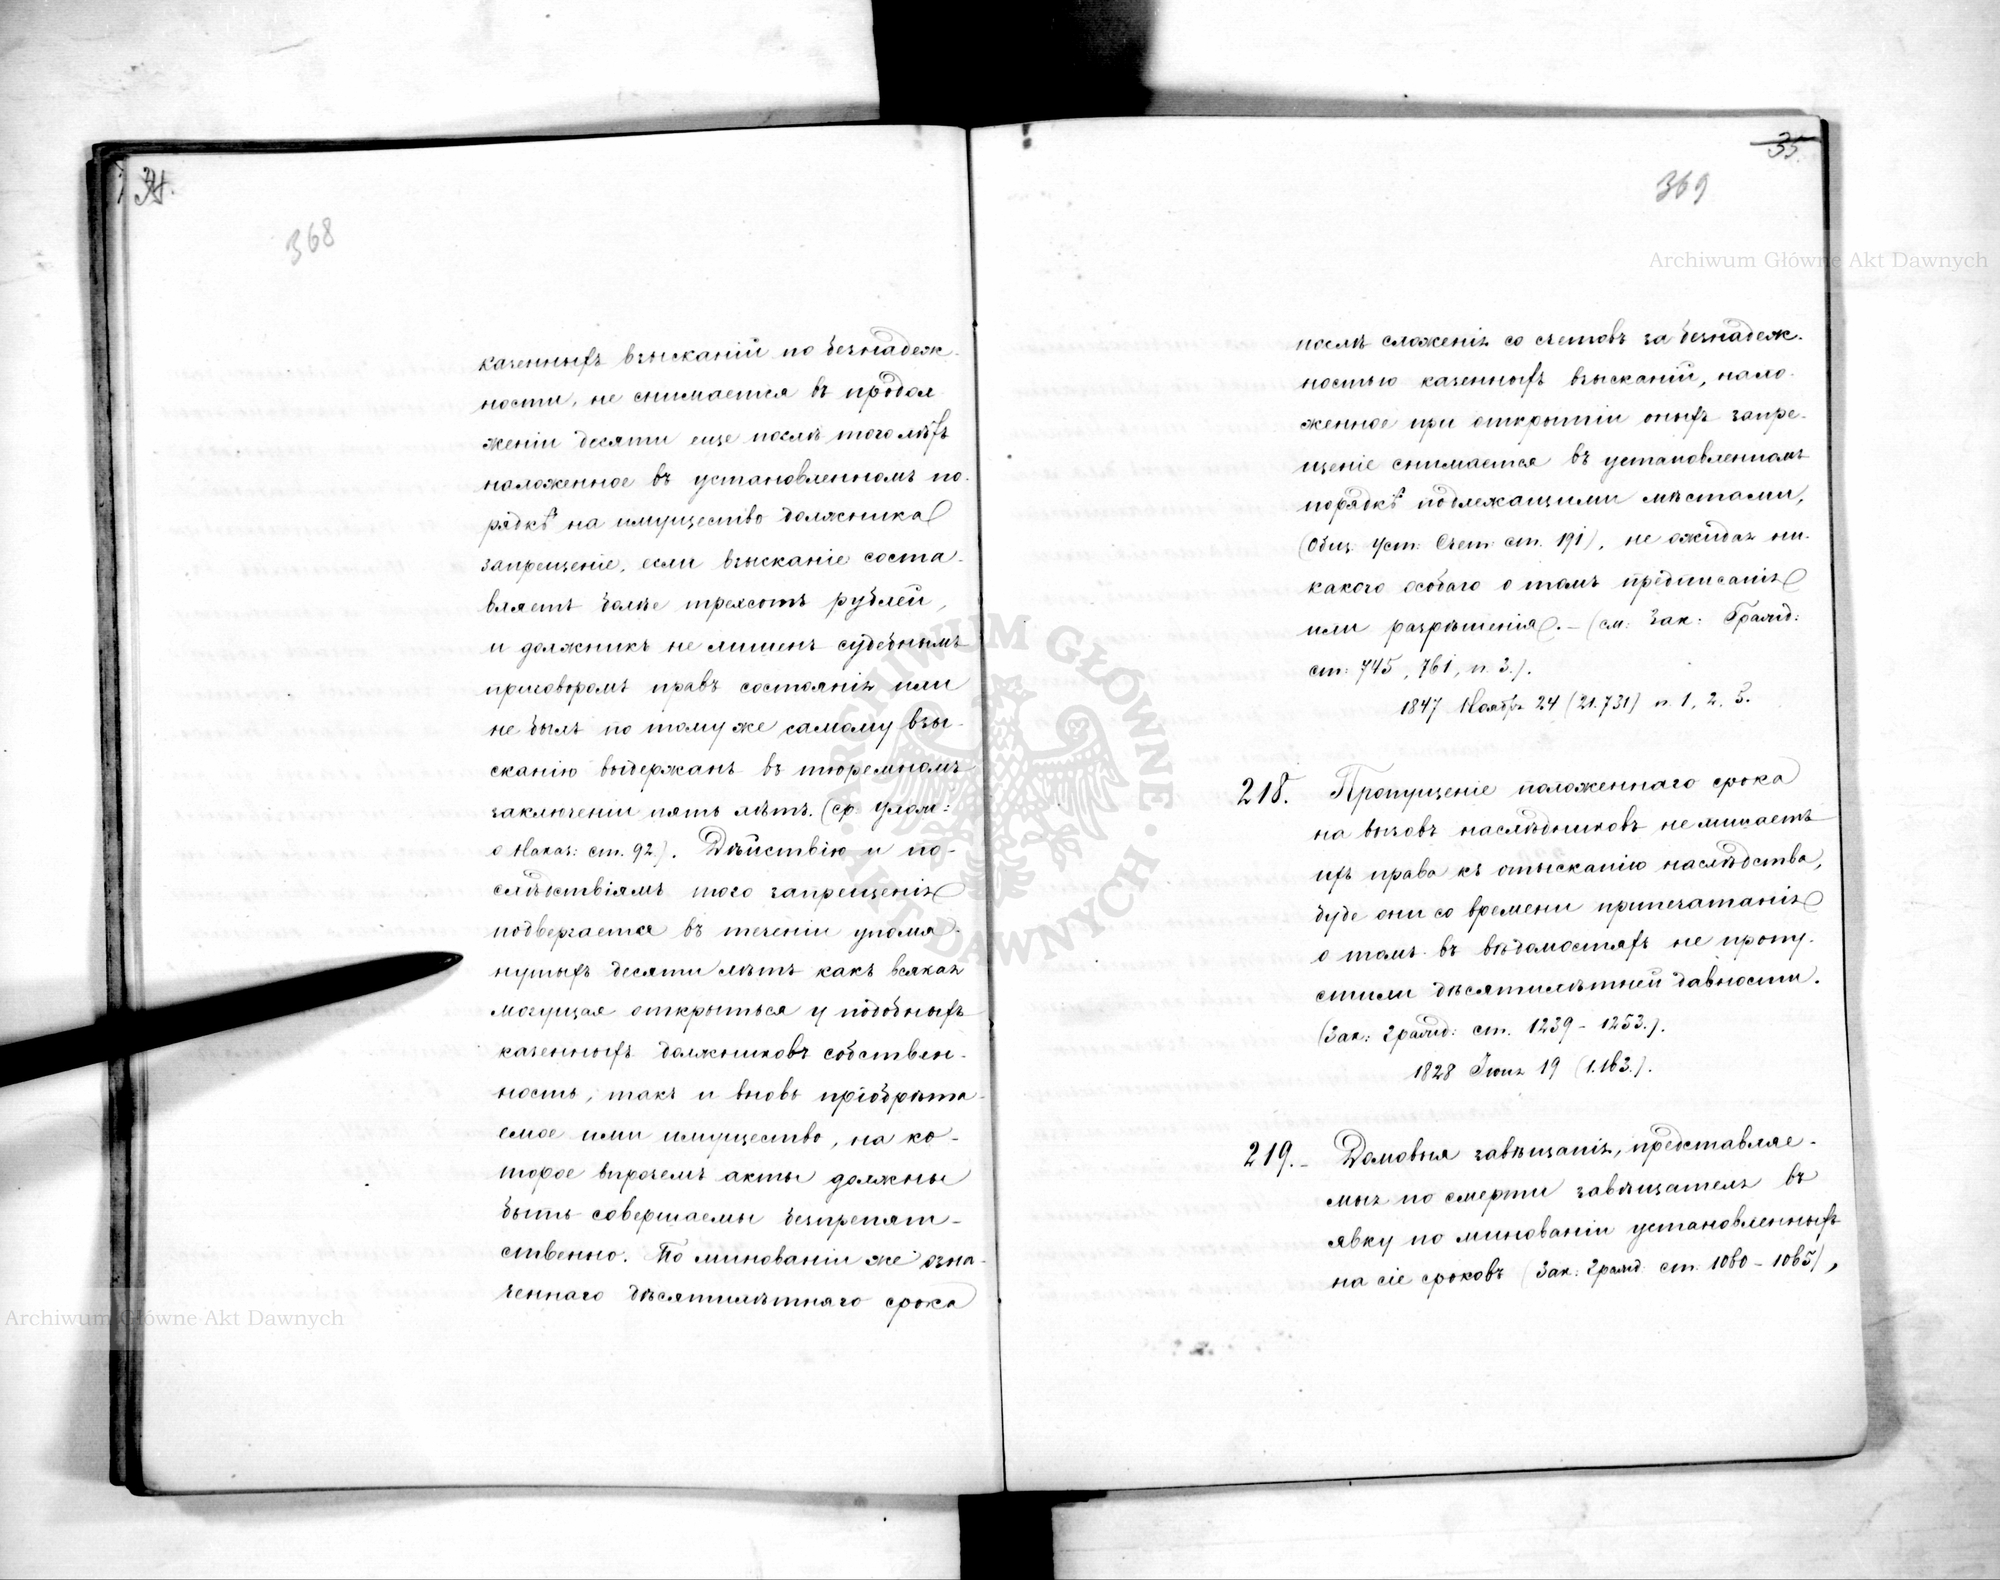 34.
368
казенныхъ взысканій по безнадеж-
ности, не снимается въ продол-
женіи десяти еще послѣ того лѣтъ
наложенное въ установленномъ по-
рядкѣ на имущество должника
запрещеніе, если взысканіе соста-
вляетъ болѣе трехсотъ рублей,
и должникъ не лишенъ судебнымъ
приговоромъ правъ состоянія или
не былъ по тому же самому взы-
сканію выдержанъ въ тюремномъ
заключеніи пять лѣтъ. (ср. Улож:
о Наказ: ст. 92). Дѣйствію и по-
слѣдствіямъ того запрещенія
подвергается въ теченіи упомя-
нутыхъ десяти лѣтъ какъ всякая
могущая открыться у подобныхъ
казенныхъ должниковъ собствен-
ность, такъ и вновь пріобрѣта-
емое ими имущество, на ко-
торое впрочемъ акты должны
быть совершаемы безпрепят-
ственно. По минованіи же озна-
ченнаго десятилѣтняго срока
35.
369
послѣ сложенія со счетовъ за безнадеж-
ностью казенныхъ взысканій, нало-
женное при открытіи оныхъ запре-
щеніе снимается въ установленномъ
порядкѣ подлежащими мѣстами,
(Общ: Уст: Счет: ст. 191), не ожидая ни-
какого особаго о томъ предписанія
или разрѣшенія. — (см: Зак: Гражд:
ст: 745, 761, п. 3.).
1847 Ноября 24 (21.731) п. 1, 2, 5.
218. Пропущеніе положеннаго срока
на вызовъ наслѣдниковъ не лишаетъ
ихъ права къ отысканію наслѣдства,
буде они со времени припечатанія
о томъ въ вѣдомостяхъ не пропу-
стили десятилѣтней давности.
(Зак: Гражд: ст. 1239 – 1253.).
1828 Іюня 19 (1.163.).
219. – Домовыя завѣщанія, представляе-
мыя по смерти завѣщателя въ
явку по минованіи установленныхъ
на сіе сроковъ (Зак: Гражд: ст. 1060 – 1065),
Archiwum Główne Akt Dawnych
Archiwum Główne Akt Dawnych
ARCHIWUM GŁÓWNE · AKT DAWNYCH ·